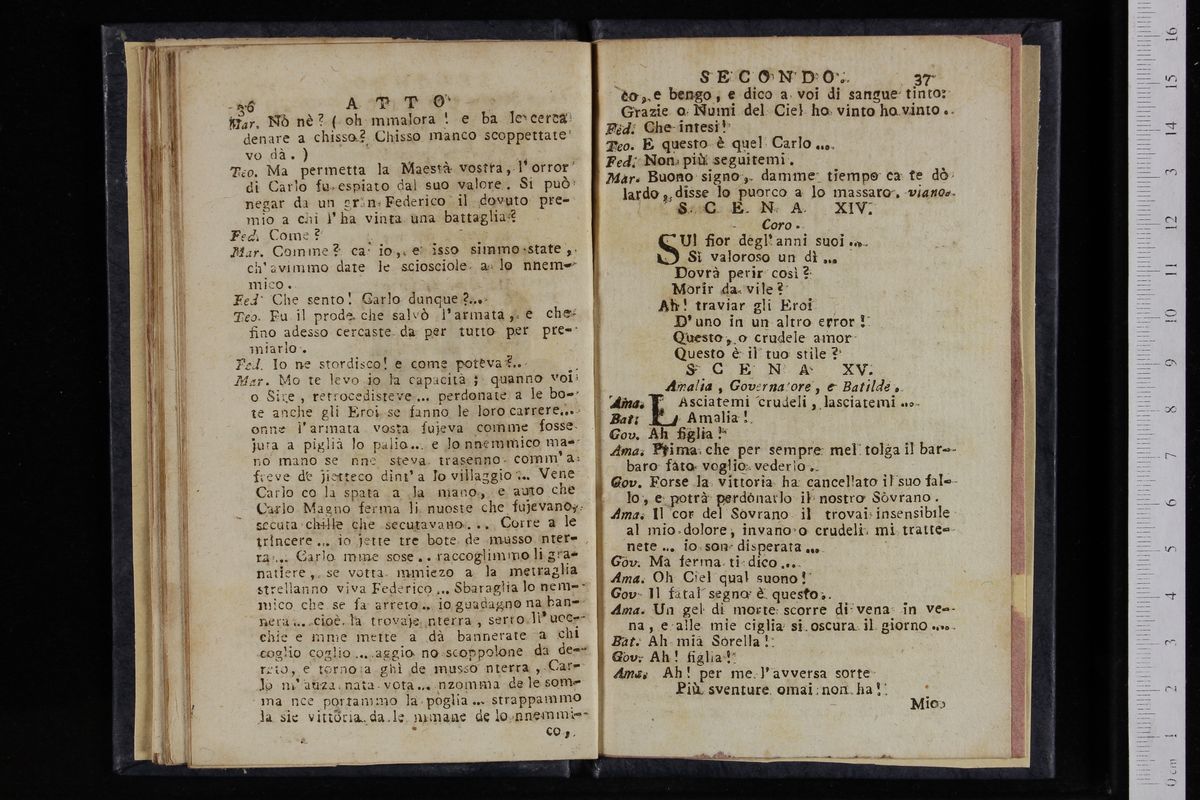 36 ATTO
Mar. Nò nè? ( oh mmalora ! e ba le cerca
denare a chisso? Chisso manco scoppettate
vo dà. )
Teo. Ma permetta la Maestà vostra, l'orror
di Carlo fu espiato dal suo valore. Si può
negar da un gran Federico il dovuto pre-
mio a chi l'ha vinta una battaglia?
Fed. Come?
Mar. Comme? ca' io, e isso simmo state,
ch'avimmo date le sciosciole a lo nnem-
mico.
Fed Che sento! Carlo dunque?...
Teo. Fu il prode che salvò l'armata, e che
fino adesso cercaste da per tutto per pre-
miarlo.
Fed. Io ne stordisco! e come poteva?..
Mar. Mo te levo io la capacità ; quanno voi
o Sire, retrocedisteve ... perdonate a le bo-
te anche gli Eroi se fanno le loro carrere...
onne l'armata vosta fujeva comme fosse
juta a piglià lo palio... e lo nnemmico ma-
no mano se nne steva trasenno comm'a
freve de jietteco dint'a lo villaggio... Vene
Carlo co la spata a la mano, e auto che
Carlo Magno ferma li nuoste che fujevano,
secuta chille che secutavano... Corre a le
trincere ... io jette tre bote de musso nter-
ra... Carlo mme sose .. raccoglimmo li gra-
natiere, se votta mmiezo a la metraglia
strellanno viva Federico ... Sbaraglia lo nem-
mico che se fa arreto .. io guadagno na ban-
nera ... cioè la trovaje nterra , serro ll'uoc-
chie e mme mette a dà bannerate a chi
coglio coglio ... aggio no scoppolone da de-
reto, e torno a ghì de musso nterra , Car-
lo m'auza nata vota... nzomma de le som-
ma nce portammo la poglia ... strappammo
la sie vittoria da le mmane de lo nnemmi-
co,
SECONDO. 37
co, e bengo, e dico a voi di sangue tinto:
Grazie o Numi del Ciel ho vinto ho vinto.
Fed. Che intesi!
Teo. E questo è quel Carlo ...
Fed. Non più seguitemi.
Mar. Buono signo, damme tiempo ca te dò
lardo, disse lo puorco a lo massaro. viano.
SCENA XIV.
Coro.
SUl fior degl'anni suoi ...
Sì valoroso un dì ...
Dovrà perir così?
Morir da vile?
Ah! traviar gli Eroi
D'uno in un altro error!
Questo, o crudele amor
Questo è il tuo stile?
SCENA XV.
Amalia, Governatore, e Batilde.
Ama. LAsciatemi crudeli, lasciatemi ...
Bat. Amalia!
Gov. Ah figlia!
Ama. Prima che per sempre mel tolga il bar-
baro fato voglio vederlo.
Gov. Forse la vittoria ha cancellato il suo fal-
lo, e potrà perdonarlo il nostro Sovrano.
Ama. Il cor del Sovrano il trovai insensibile
al mio dolore, invano o crudeli mi tratte-
nete ... io son disperata ...
Gov. Ma ferma ti dico...
Ama. Oh Ciel qual suono!
Gov Il fatal segno è questo.
Ama. Un gel di morte scorre di vena in ve-
na, e alle mie ciglia si oscura il giorno ....
Bat. Ah mia Sorella!
Gov. Ah! figlia!
Ama. Ah! per me l'avversa sorte
Più sventure omai non ha!
Mio